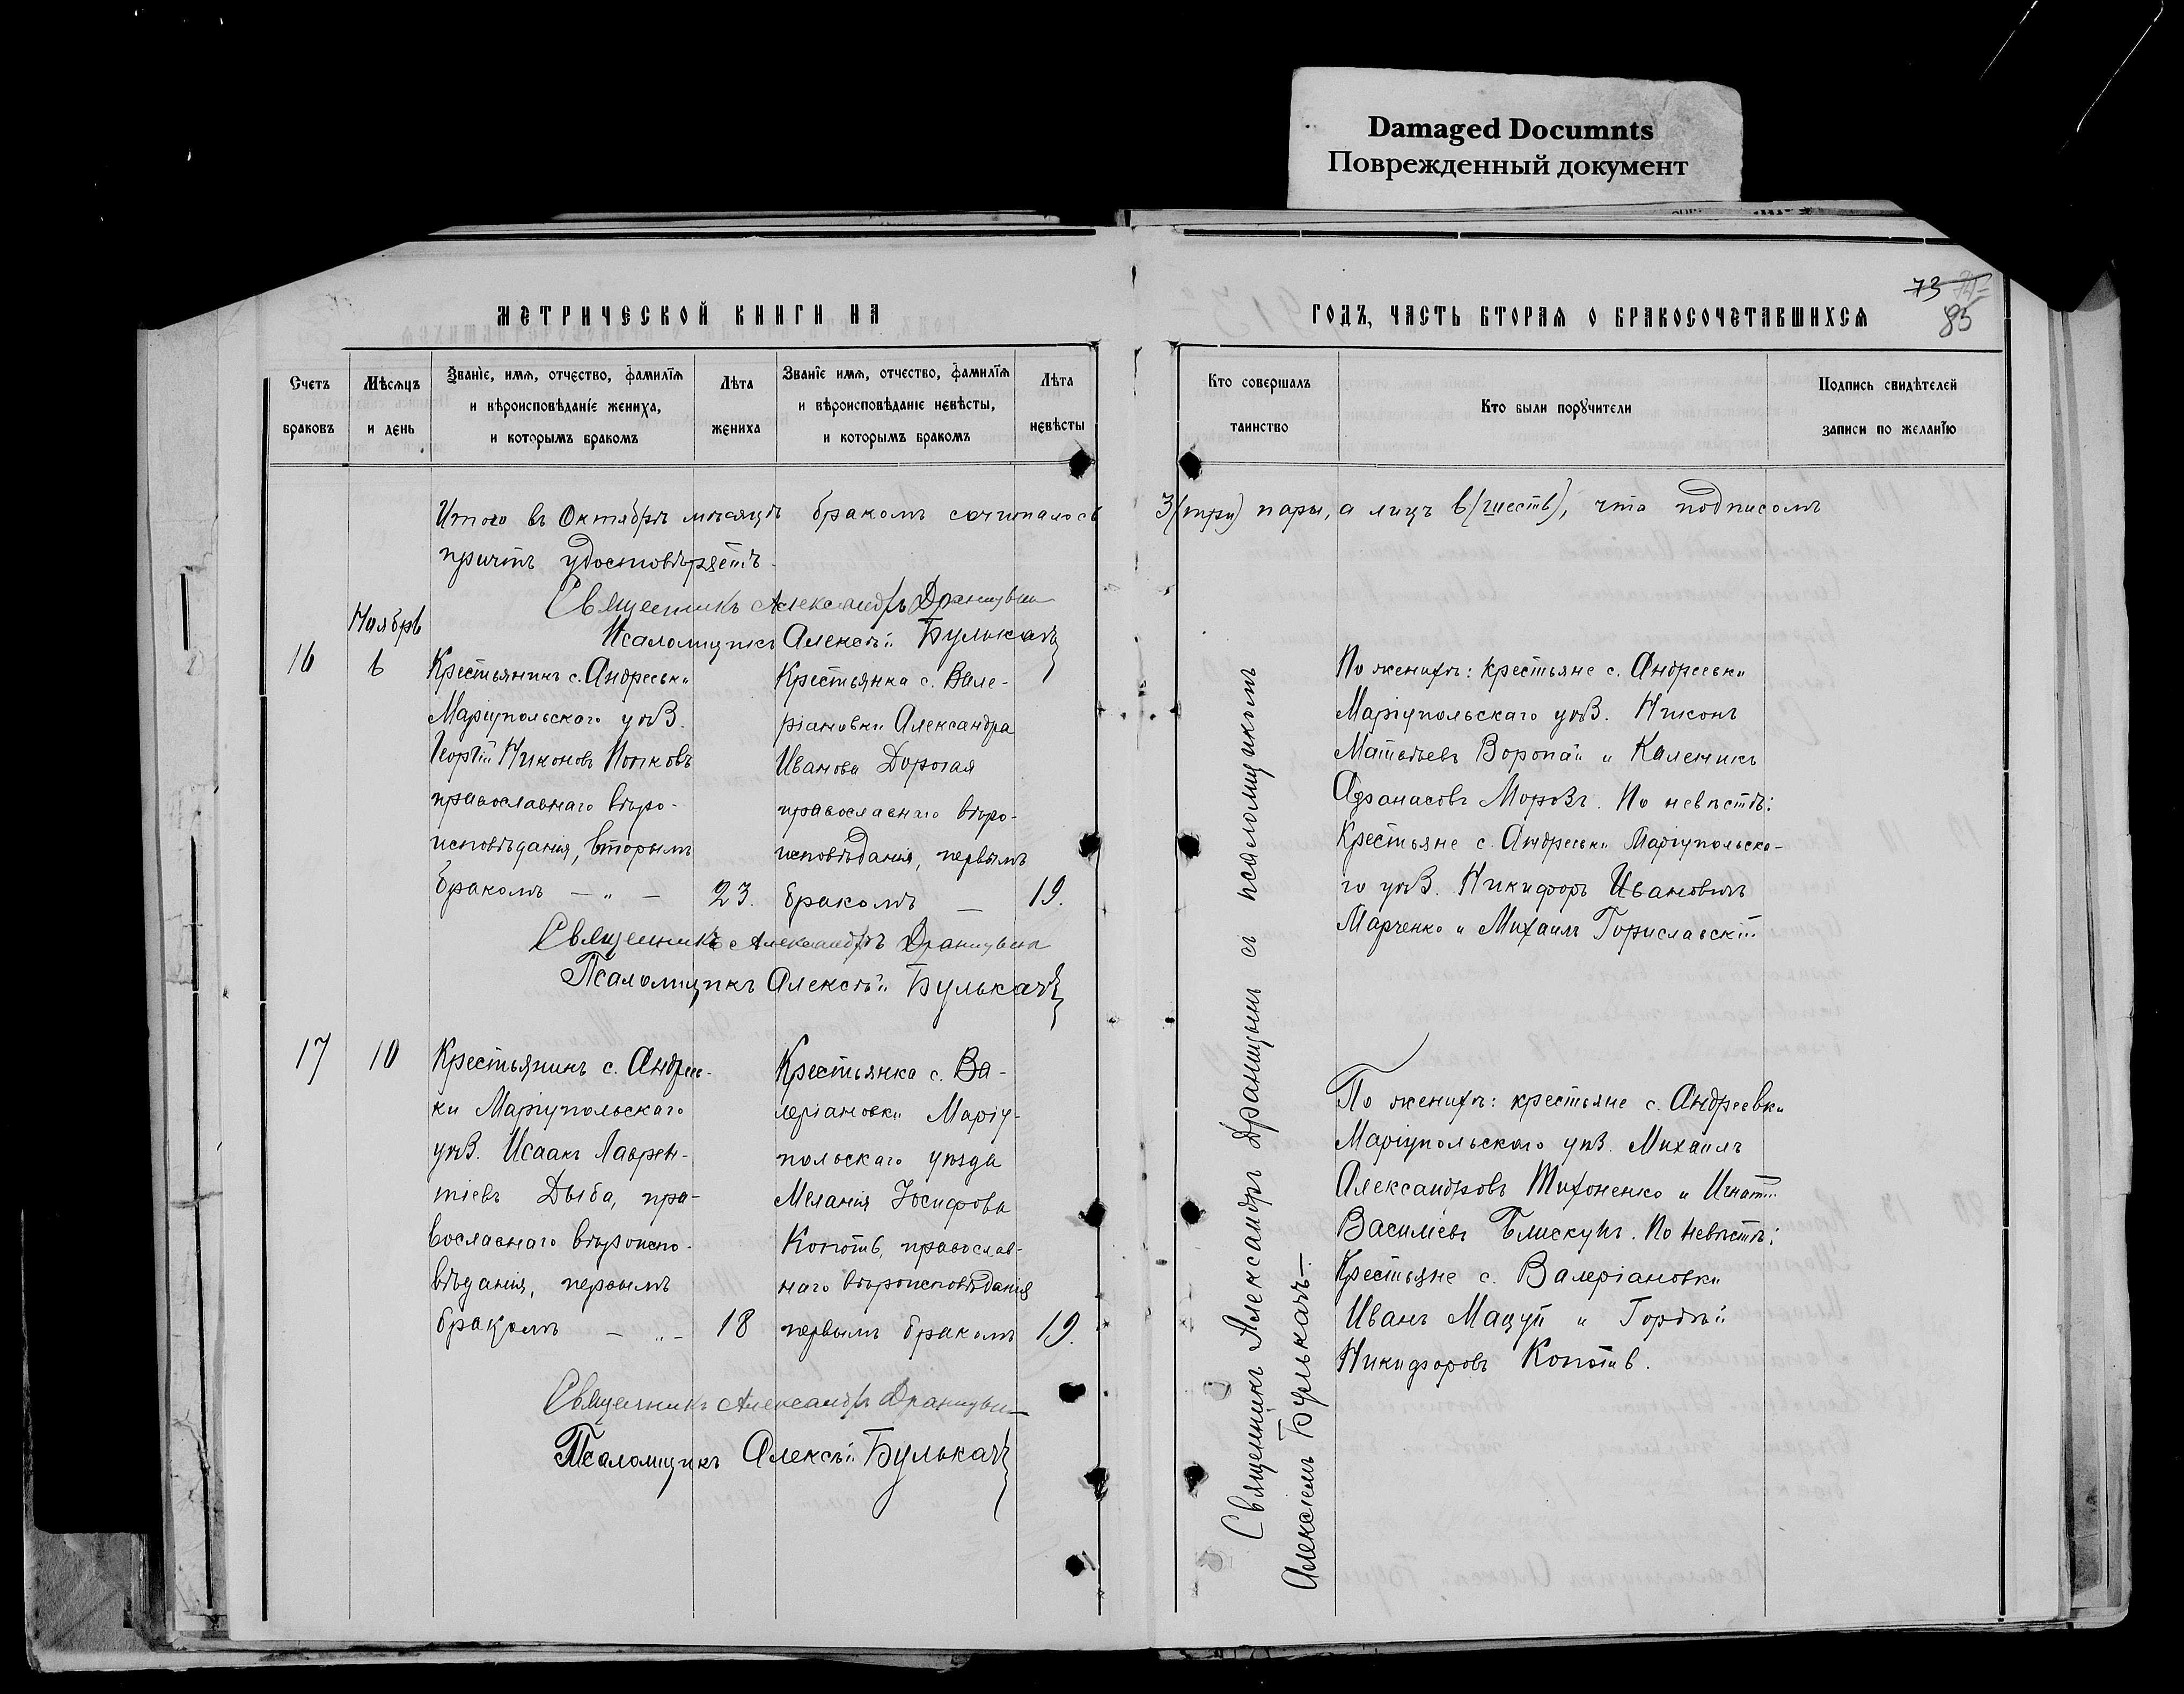 Damaged Documnts
Поврежденный документ
73
85
МЕТРИЧЕСКОЙ КНИГИ НА
ГОДЪ, ЧАСТЬ ВТОРАЯ О БРАКОСОЧЕТАВШИХСЯ
Счетъ браковъ
Мѣсяцъ и день
Званіе, имя, отчество, фамилія и вѣроисповѣданіе жениха, и которымъ бракомъ
Лѣта жениха
Званіе имя, отчество, фамилія и вѣроисповѣданіе невѣсты, и которымъ бракомъ
Лѣта невѣсты
Кто совершалъ таинство
Кто были поручители
Подпись свидѣтелей записи по желанію
Итого въ Октябрѣ мѣсяцѣ бракомъ сочиталось 3 (три) пары, а лицъ 6 (шесть), что подписомъ
причтъ удостовѣряетъ.
Священникъ Александръ
Псаломщикъ Алексѣй Булькачъ
Ноябрь
16
6
Крестьянинъ с. Андреевки
Маріупольскаго уѣз.
Георгій Никоновъ Попковъ
православнаго вѣро-
исповѣданія, вторымъ
бракомъ — „ —
23.
Крестьянка с. Вале-
ріановки Александра
Иванова Дорогая
православнаго вѣро-
исповѣданія, первымъ
бракомъ —
19.
Священникъ Александръ
Псаломщикъ Алексѣй Булькачъ
17
10
Крестьянинъ с. Андреев-
ки Маріупольскаго
уѣз. Исаакъ Лаврен-
тіевъ Дыба, пра-
вославнаго вѣроиспо-
вѣданія, первымъ
бракомъ — „ —
18
Крестьянка с. Ва-
леріановки Маріу-
польскаго уѣзда
Меланія Іосифова
Копоть, православ-
наго вѣроисповѣданія
первымъ бракомъ
19.
Священникъ Александръ
Псаломщикъ Алексѣй Булькачъ
Священникъ Александръ Драницынъ съ псаломщикомъ
Алексѣемъ Булькачъ —
По женихѣ: крестьяне с. Андреевки
Маріупольскаго уѣз. Никонъ
Матвѣевъ Воропай и Каленикъ
Афанасовъ Морозъ. По невѣстѣ:
Крестьяне с. Андреевки Маріупольска-
го уѣз. Никифоръ Ивановичъ
Марченко и Михаилъ Гориславскій
По женихѣ: крестьяне с. Андреевки
Маріупольскаго уѣз. Михаилъ
Александровъ Тихоненко и Игнатій
Василіевъ Блискунъ. По невѣстѣ:
Крестьяне с. Валеріановки
Иванъ Мацуй и Гордѣй
Никифоровъ Копоть.